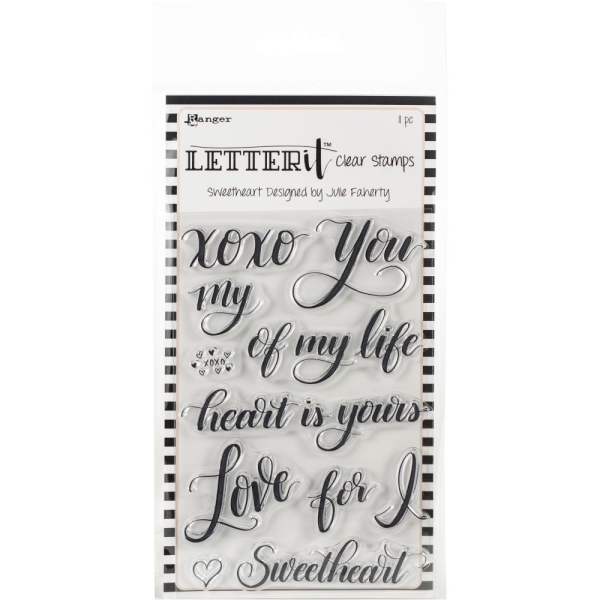 Ranger
11 pc
LETTERit™ Clear Stamps
Sweetheart Designed by Julie Faherty
xoxo You
my
of my life
xoxo
heart is yours
Love for I
Sweetheart